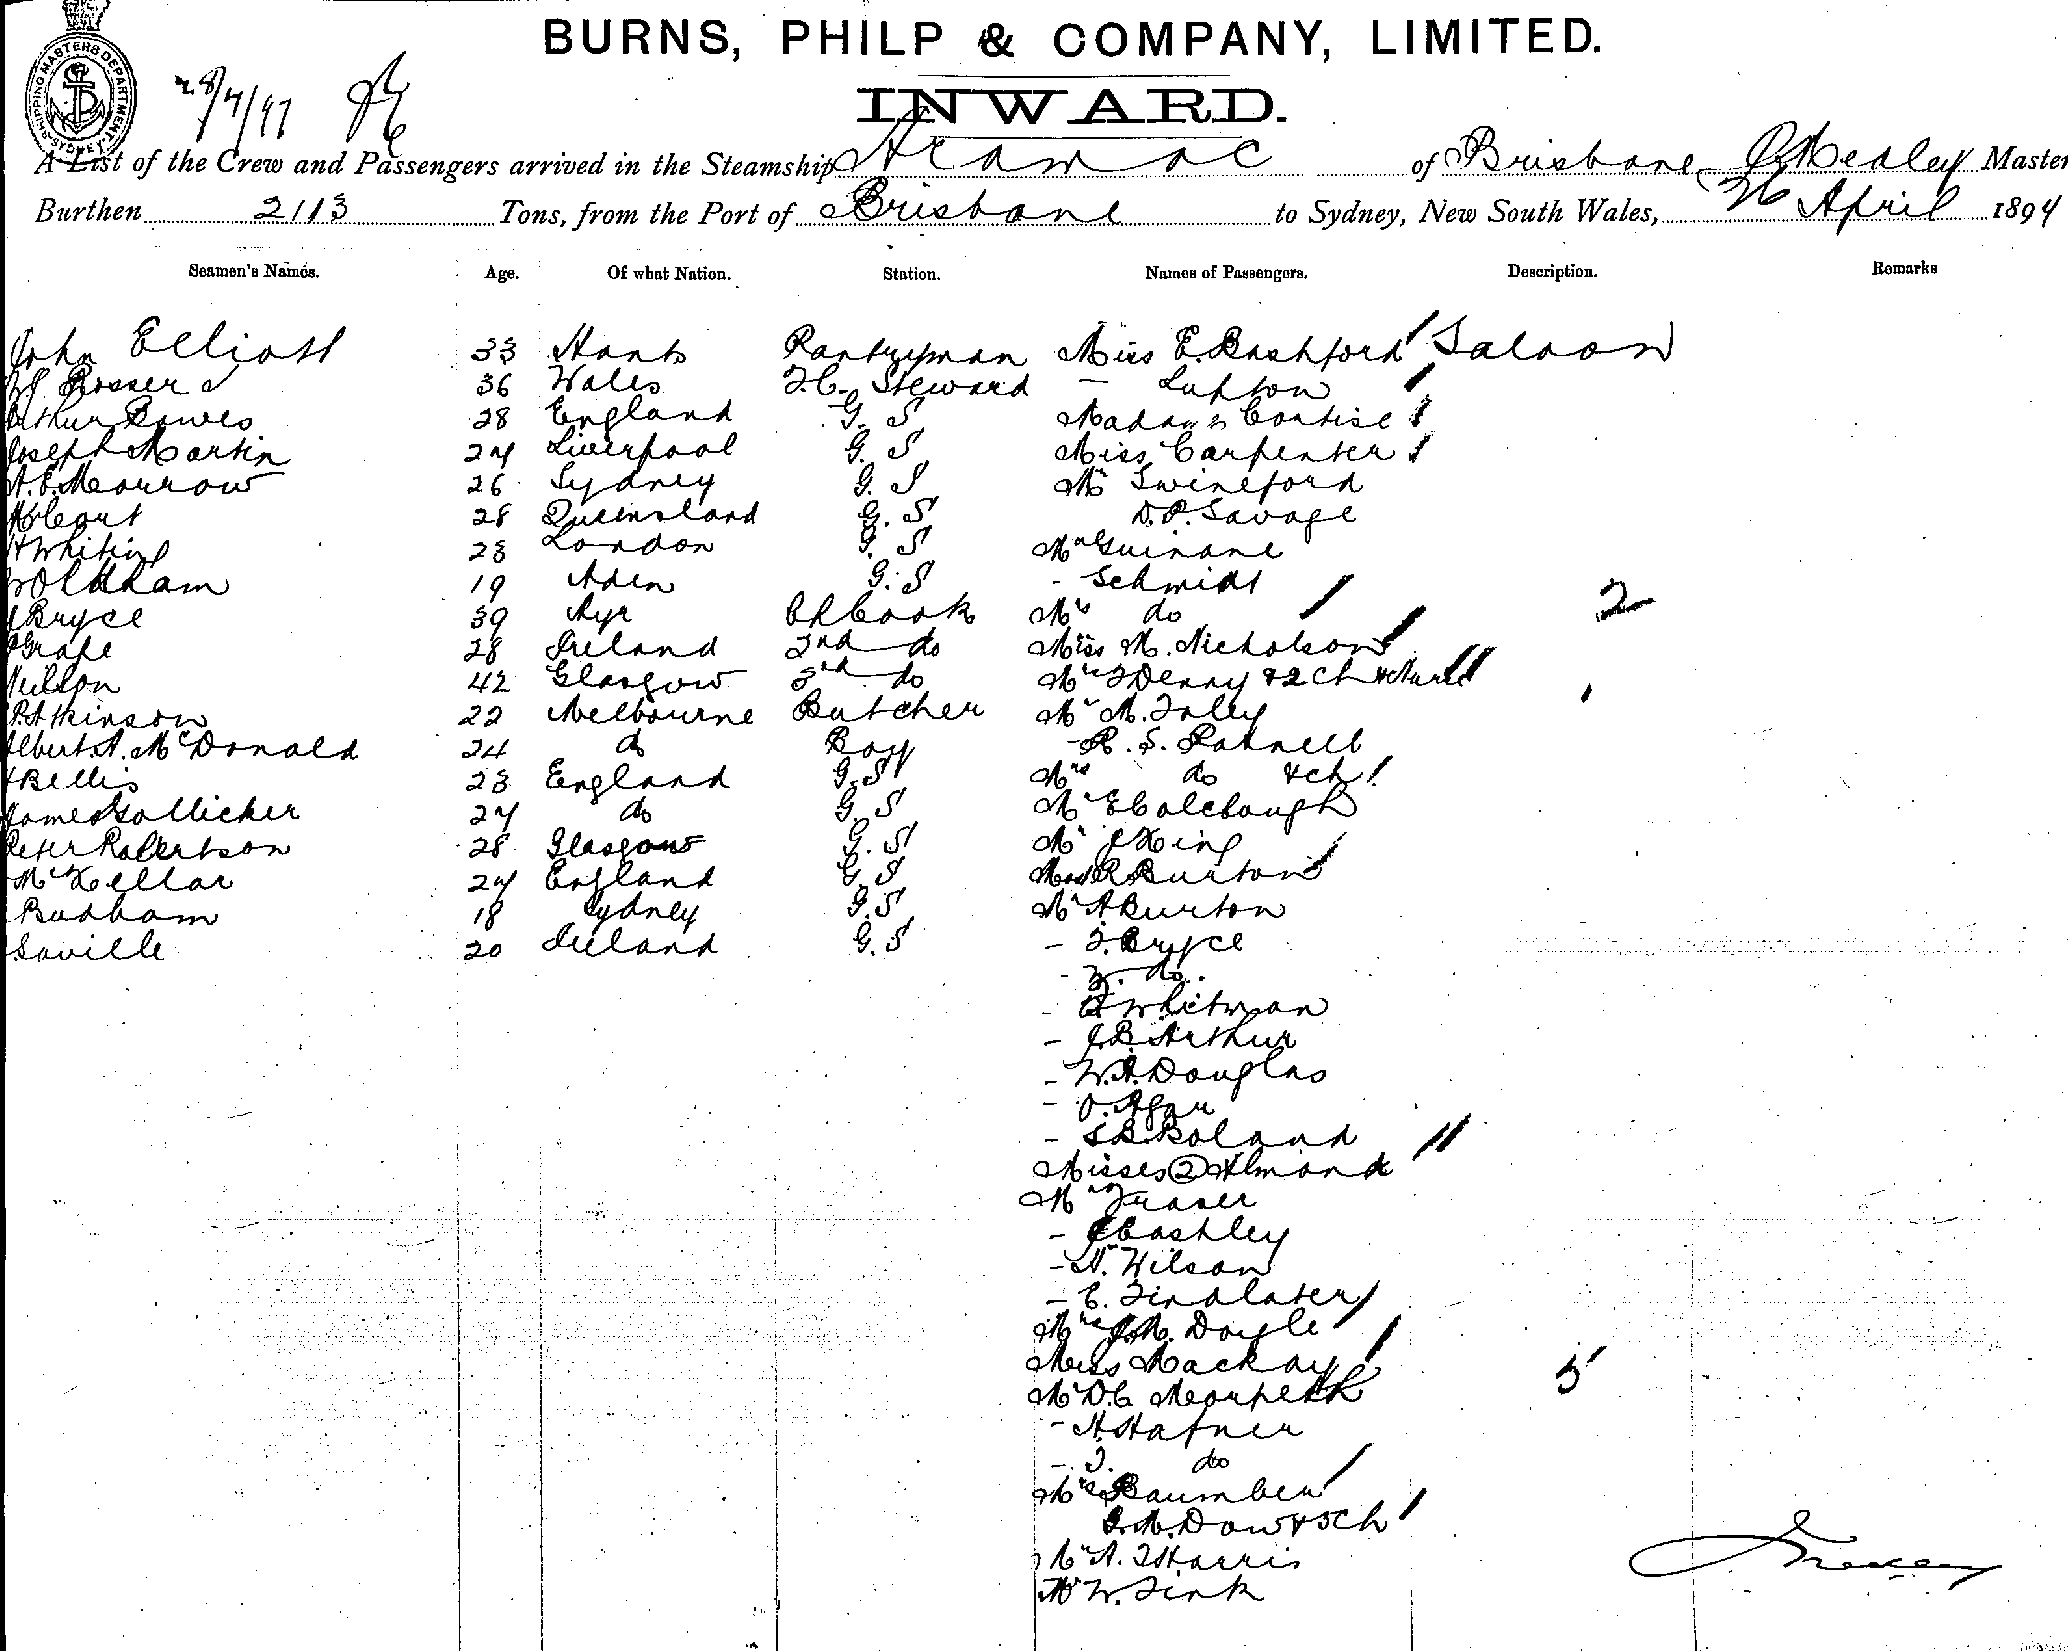 BURNS, PHILP & COMPANY, LIMITED.
SHIPPING MASTERS DEPARTMENT SYDNEY
INWARD.
A List of the Crew and Passengers arrived in the Steamship Aramac of Brisbane, Healey Master
Burthen 2113 Tons, from the Port of Brisbane to Sydney, New South Wales, 26 April 1897
Seamen's Names. Age. Of what Nation. Station. Names of Passengers. Description. Remarks
John Elliott 33 Hants Pantryman Miss E. Bashford Saloon
Rosser 36 Wales F.C. Steward - Lupton
Arthur Bowes 28 England G. S Madam Cortise
Joseph Martin 24 Liverpool G. S Miss Carpenter
A. E. Mearrow 26 Sydney G. S Mr Swineford
28 Queensland G. S D.P. Savage
H Whiting 23 London G. S Mr Guinane
Oldham 19 Aden G. S - Schmidt
Bryce 39 Ayr Ch Cook Mrs do 2
Grape 28 Ireland 2nd do Miss M. Nicholson
Neilson 42 Glasgow 3rd do Mrs Denny & 2 Ch & Nurse
P. Atkinson 22 Melbourne Butcher Mr M. Foley
Albert A. McDonald 24 do Boy - R. S. Parnell
Bellis 23 England G. S Mrs do & ch
James Gollicker 24 do G. S Mr E Colclough
Peter Robertson 28 Glasgow G. S Mr J King
McKellar 24 England G. S R Burton
Badham 18 Sydney G. S Mr A Burton
Saville 20 Ireland G. S - T. Bryce
- do.
Whitman
- J.B. Arthur
- W.A. Douglas
- O. Agar
- Boland
Misses 2 Almond
Mr Fraser
- Cashley
- H. Wilson
- C. Findlater
Mrs J.M. Doyle
Miss Mackay 5
Mr D.C.
- H Hafner
- J. do
Mrs
Dow & 3 ch
Mr A. J Harris
Mr W. Fink